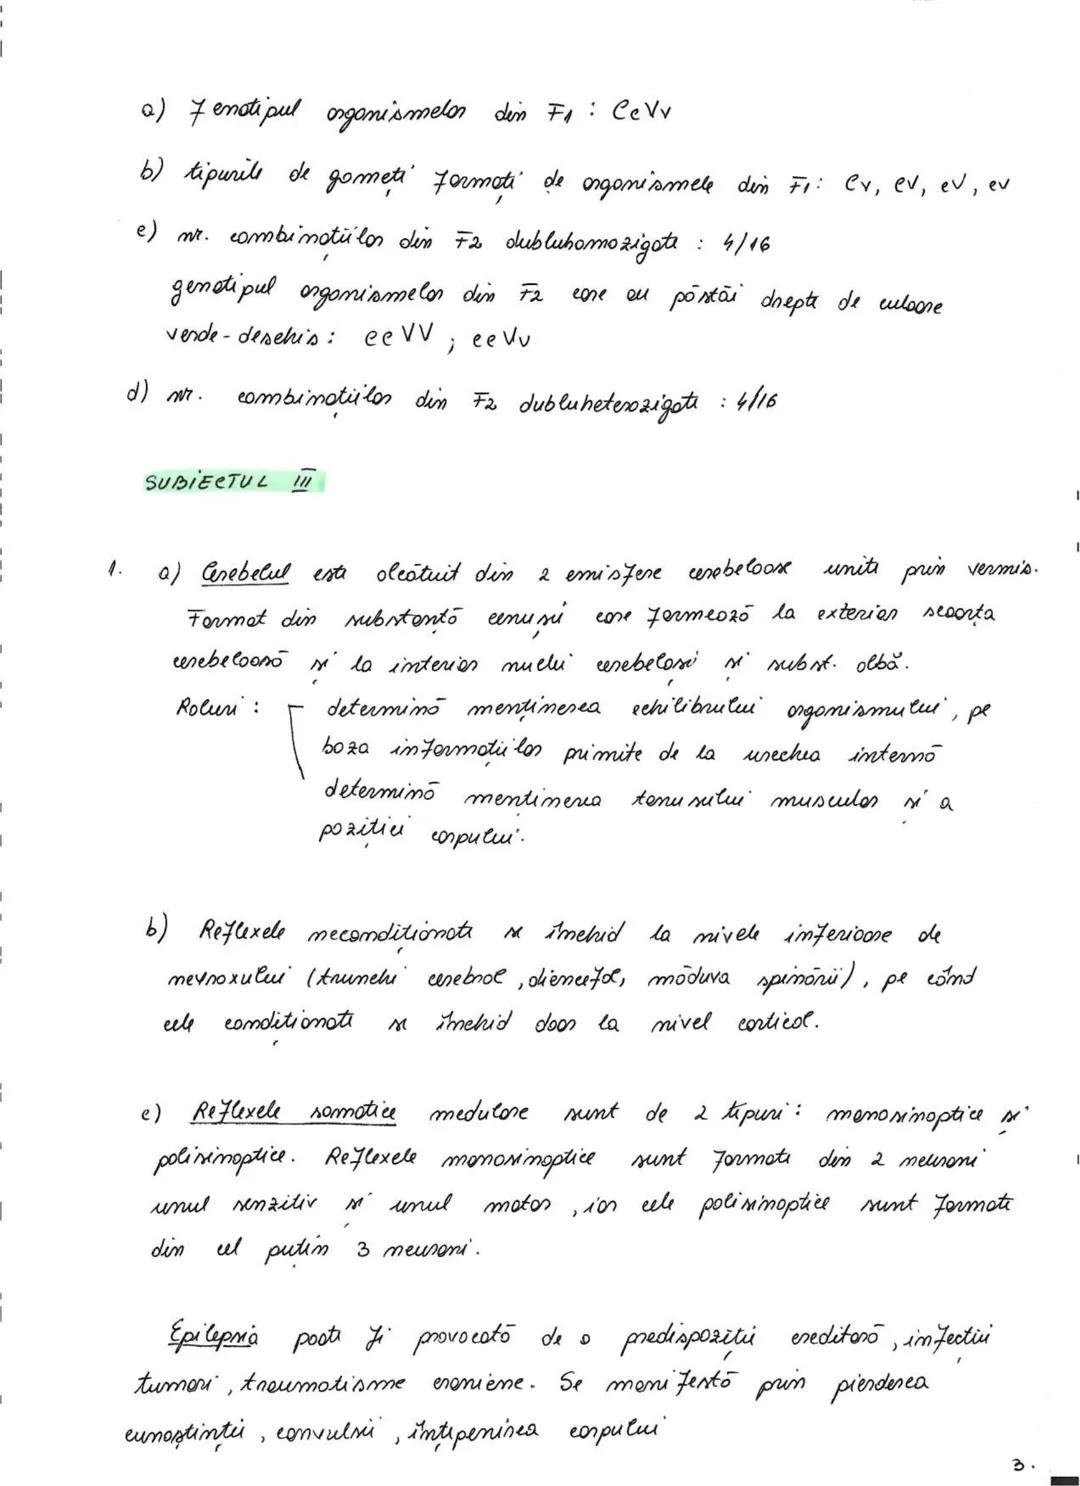 a) Fenotipul organismelor din F1 : CcVv
b) tipurile de gameți formați de organismele din F1: Cv, CV, cV, cv
c) nr. combinațiilor din F2 dubluhomozigote : 4/16
genotipul organismelor din F2 care au păstăi drepte de culoare
verde-deschis : ccVV ; ccVv
d) nr. combinațiilor din F2 dubluheterozigote : 4/16
SUBIECTUL III
1. a) Cerebelul este alcătuit din 2 emisfere cerebeloase unite prin vermis.
Format din substanță cenușii care formează la exterior scoarța
cerebeloasă și la interior nuclei cerebeloși și subst. albă.
Roluri : determină menținerea echilibrului organismului, pe
baza informațiilor primite de la urechea internă
determină menținerea tonusului muscular și a
poziției corpului.
b) Reflexele necondiționate se închid la nivele inferioare de
nevraxului (trunchi cerebral, diencefal, măduva spinării), pe când
cele condiționate se închid doar la nivel cortical.
c) Reflexele somatice medulare sunt de 2 tipuri : monosinaptice și
polisinaptice. Reflexele monosinaptice sunt formate din 2 neuroni
unul senzitiv și unul motor, iar cele polisinaptice sunt formate
din cel puțin 3 neuroni.
Epilepsia poate fi provocată de o predispoziții ereditară, infecții
tumori, traumatisme craniene. Se manifestă prin pierderea
cunoștinței, convulsii, înțepenirea corpului
3.